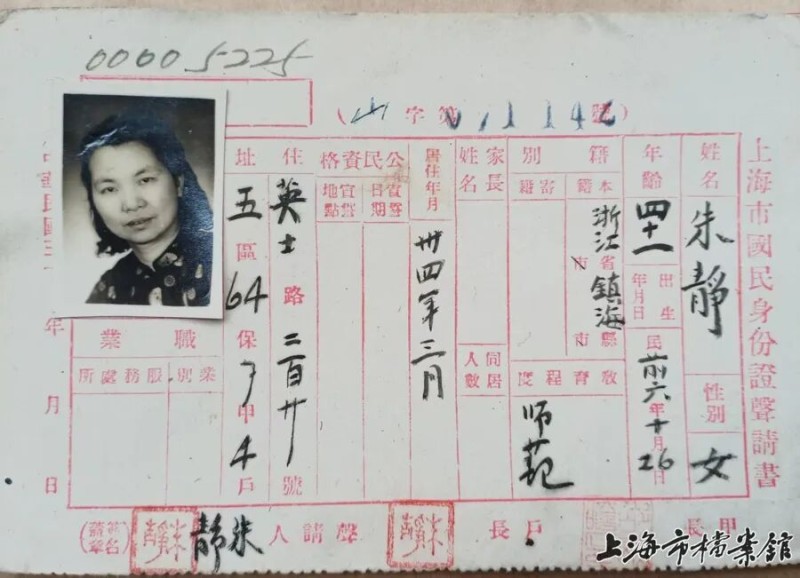 00005225
(山字第01142號)
上海市國民身份證聲請書
姓名 朱靜 性別 女
年齡 四十一 出生年月日 民前六年十月26日
籍別 本籍 浙江省市 鎮海縣市
寄籍
教育程度 师范
家長姓名
同居人數
居住年月 卅四年三月
公民資格 宣誓日期
宣誓地點
住址 英士路二百廿號
五區64保7甲4戶
職業 業別
服務處所
年 月 日
甲長
戶長 朱靜
聲請人 朱靜 朱靜 (簽名蓋章)
上海市檔案館